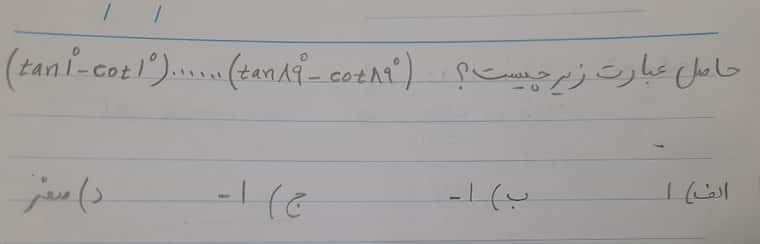 حاصل عبارت زیر چیست؟ (tan۱° - cot۱°)......(tan۸۹° - cot۸۹°)
الف) ۱ ب) ۱- ج) ۱- د) صفر